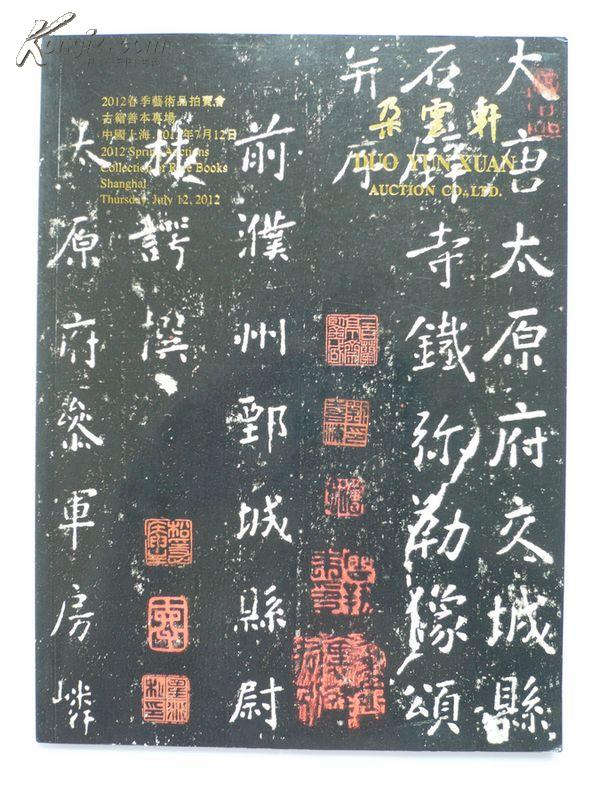 大唐太原府交城縣
石壁寺鐵弥勒像頌
并序
前濮州鄄城縣尉
林諤撰
太原府叅軍房嶙
朵雲軒
DUO YUN XUAN
AUCTION CO., LTD.
2012春季藝術品拍賣會
古籍善本專場
中國上海,2012年7月12日
2012 Spring Auctions
Collection of Rare Books
Shanghai
Thursday, July 12, 2012